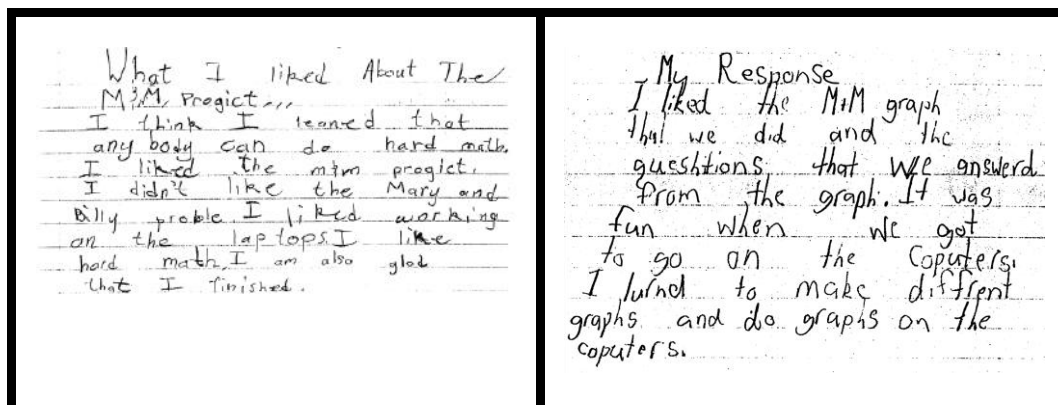 What I liked About The
M&M, Progict...
I think I leaned that
any body can do hard math.
I liked the m&m progict.
I didn't like the Mary and
Billy proble. I liked working
on the laptops. I like
hard math. I am also glad
that I finished.
My Response
I liked the M&M graph
that we did and the
queshtions that we answerd
from the graph. It was
fun when we got
to go on the Coputers.
I lurnd to make diffrent
graphs and do graphs on the
coputers.